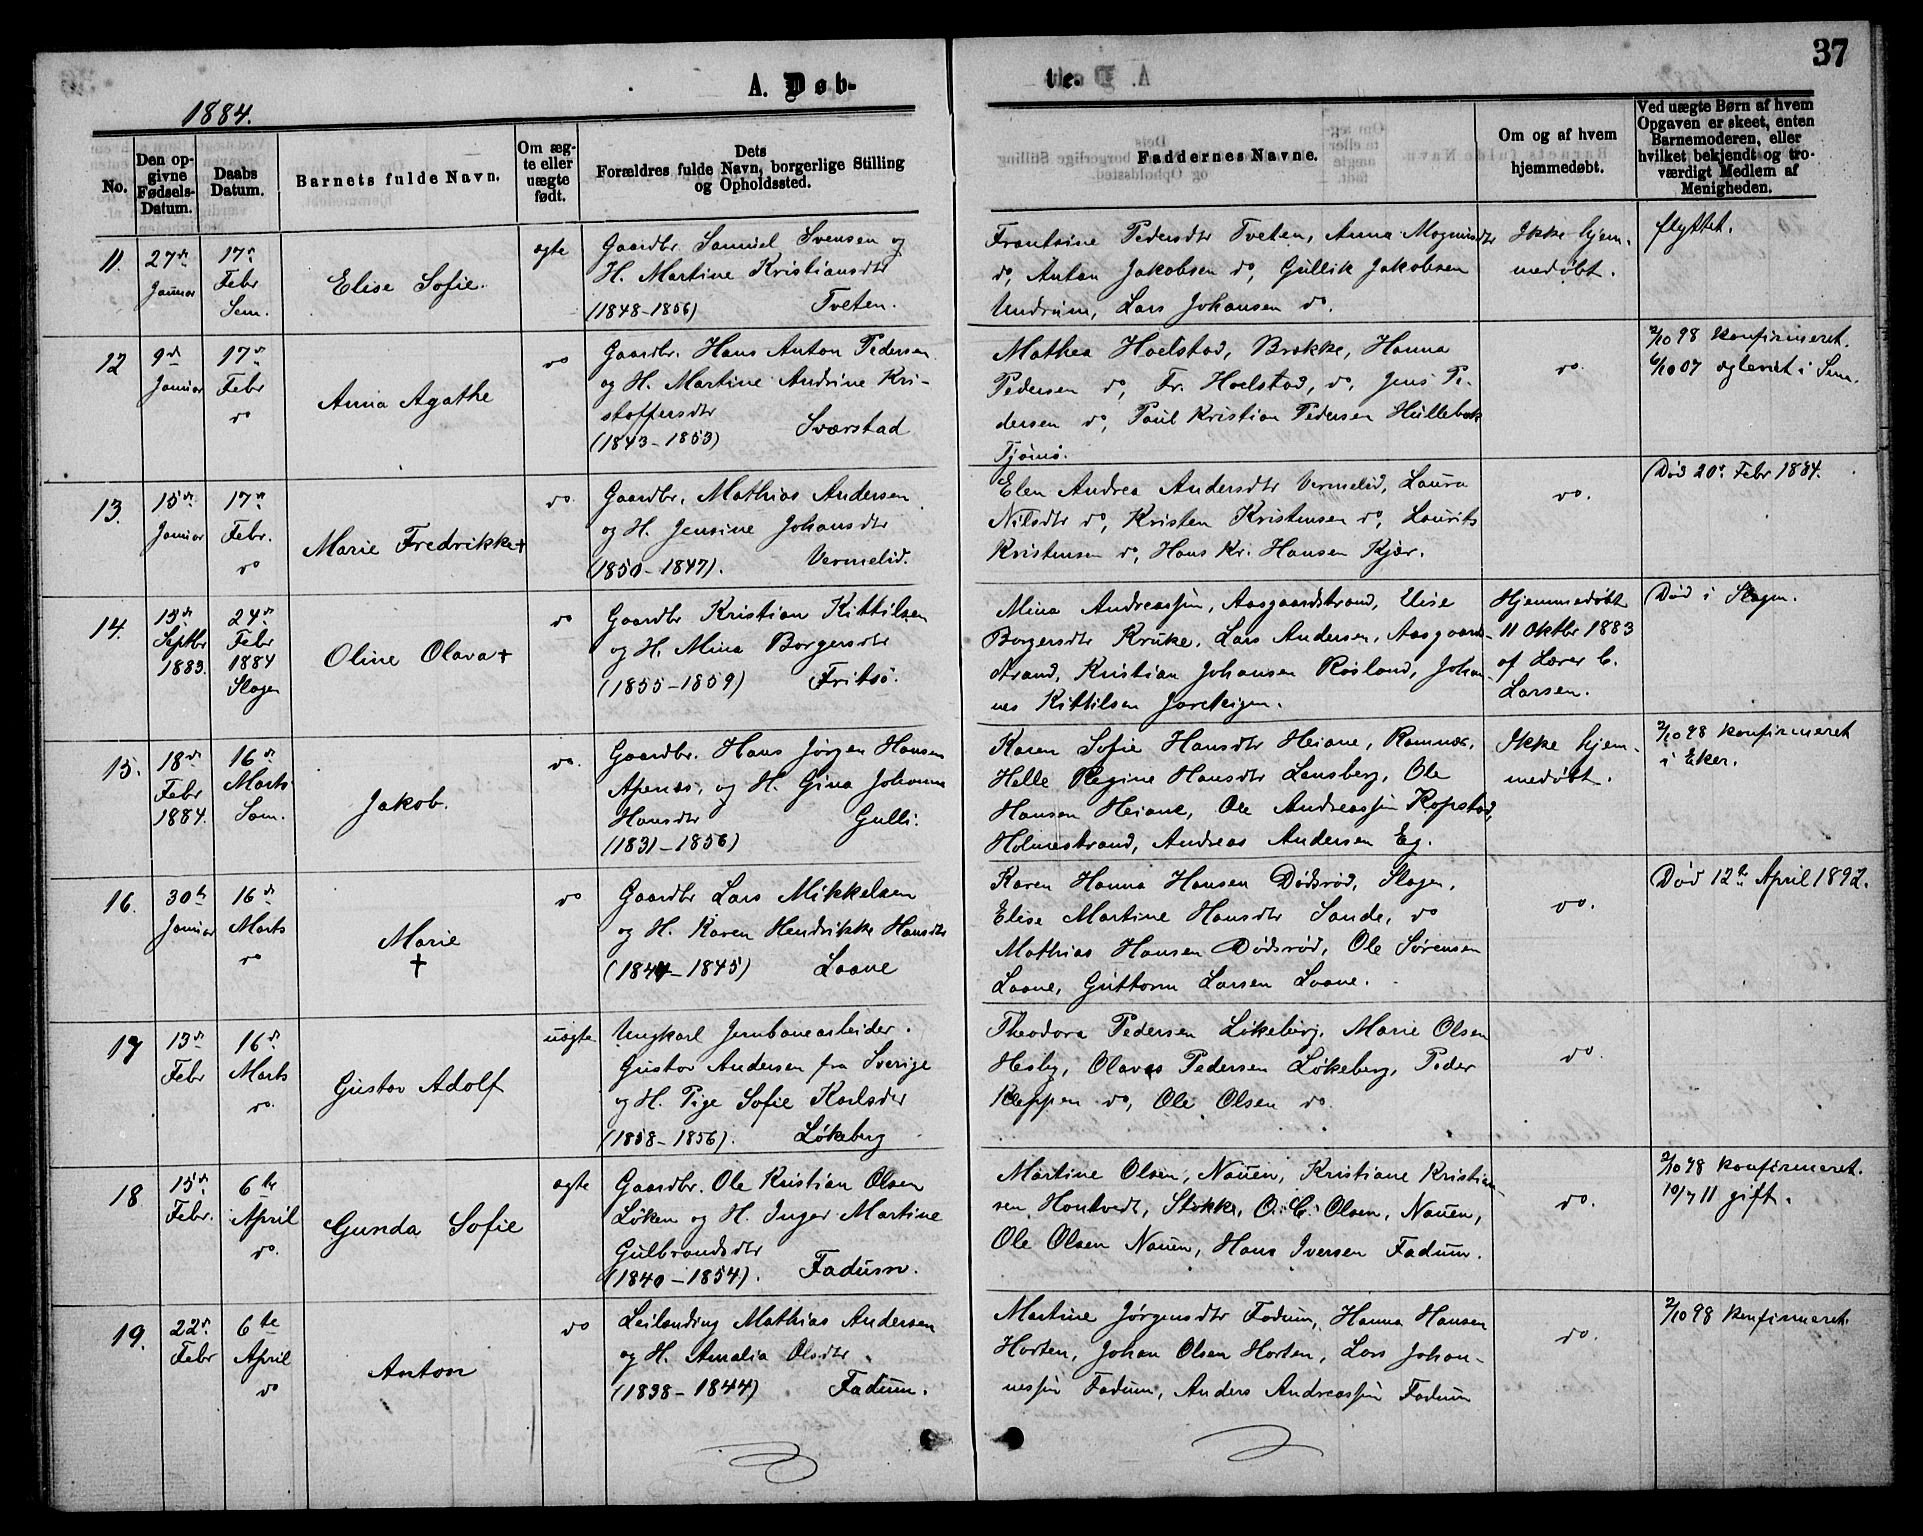 37
A. Døb-
te.
1884.
No.
Den op-
givne
Fødsels-
Datum.
Daabs
Datum.
Barnets fulde Navn.
Om æg-
te eller
uægte
født.
Dets
Forældres fulde Navn, borgerlige Stilling
og Opholdssted.
Faddernes Navne.
Om og af hvem
hjemmedøbt.
Ved uægte Børn af hvem
Opgaven er skeet, enten
Barnemoderen, eller
hvilket bekjendt og tro-
værdigt Medlem af
Menigheden.
11.
27de
Januar
17de
Febr
Sem.
Elise Sofie.
ægte
Gaardbr. Samuel Svensen og
H. Martine Kristiansdtr
(1848-1856) Tveten.
Frantsine Pedersdtr Tveten, Anna Magnusdtr
do, Anton Jakobsen do, Gullik Jakobsen
Undrum, Lars Johansen do.
Ikke hjem-
medøbt.
flyttet.
12
9de
Januar
17de
Febr
do
Anna Agathe
do
Gaardbr. Hans Anton Pedersen
og H. Martine Andrine Kri-
stoffersdtr
(1843-1853) Sværstad
Mathea Hoelstad, Brekke, Hanna
Pedersen do, Fr. Hoelstad, do, Jens Pe-
dersen do, Paul Kristian Pedersen Hullebæk
Tjømø.
do.
2/10 98 konfirmeret.
6/10 07 ægteviet i Sem.
13.
15de
Januar
17de
Febr.
do
Marie Fredrikke +
do.
Gaardbr. Mathias Andersen
og H. Jensine Johansdtr
(1850-1847). Vermelid.
Elen Andrea Andersdtr Vermelid, Laura
Nilsdtr do, Kristen Kristensen do, Laurits
Kristensen do, Hans Kr. Hansen Kjær.
do.
Død 20de Febr 1884.
14.
13de
Septbr
1883.
24de
Febr
1884
Slagen
Oline Olava +
do
Gaardbr Kristian Kittilsen
og H. Mina Borgersdtr
(1855-1859) Fritsø.
Mina Andreassen, Aasgaardstrand, Elise
Borgersdtr Kruke, Lars Andersen, Aasgaard-
strand, Kristian Johansen Røsland, Johan-
nes Kittilsen Jareteigen.
Hjemmedøbt
11 Oktbr 1883
af Lærer C.
Larsen.
Død i Slagen.
15.
18de
Febr
1884.
16de
Marts
Sem.
Jakob.
do.
Gaardbr. Hans Jørgen Hansen
Apenæs, og H. Gina Johanna
Hansdtr Gulli.
(1831-1856)
Karen Sofie Hansdtr Heiane, Ramnæs,
Helle Regine Hansdtr Lansberg, Ole
Hansen Heiane, Ole Andreassen Kopstad,
Holmestrand, Andreas Andersen Eg.
Ikke hjem-
medøbt.
2/10 98 konfirmeret
i Eker.
16.
30te
Januar
16de
Marts
do
Marie
+
do
Gaardbr Lars Mikkelsen
og H. Karen Hendrikke Hansdtr
(1844-1845) Laane
Karen Hanna Hansen Dødsrød, Slagen,
Elise Martine Hansdtr Sande, do
Mathias Hansen Dødsrød, Ole Sørensen
Laane, Guttorm Larsen Laane.
do.
Død 12te April 1892.
17
13de
Febr
16de
Marts
do.
Gustav Adolf
uægte
Ungkarl Jernbanearbeider
Gustav Andersen fra Sverige
og H. Pige Sofie Karlsdtr
(1858-1856). Løkeberg
Theodora Pedersen Løkeberg, Marie Olsen
Hesby, Olaves Pedersen Løkeberg, Peder
Kleppen do, Ole Olsen do.
do.
18
15de
Febr.
6te
April
do.
Gunda Sofie
ægte
Gaardbr. Ole Kristian Olsen
Løken og H. Inger Martine
Gulbrandsdtr
(1840-1854). Fadum.
Martine Olsen, Nauen, Kristiane Kristian-
sen Hontvedt, Stokke, O. C. Olsen, Nauen,
Ole Olsen Nauen, Hans Iversen Fadum.
do.
2/10 98 konfirmeret.
10/7 11 gift.
19.
22de
Febr
6te
April
do
Anton
do
Leilending Mathias Andersen
og H. Amalia Olsdtr
(1838-1844) Fadum.
Martine Jørgensdtr Fadum, Hanna Hansen
Horten, Johan Olsen Horten, Lars Johan-
nessen Fadum, Anders Andreassen Fadum
do.
2/10 98 konfirmeret.